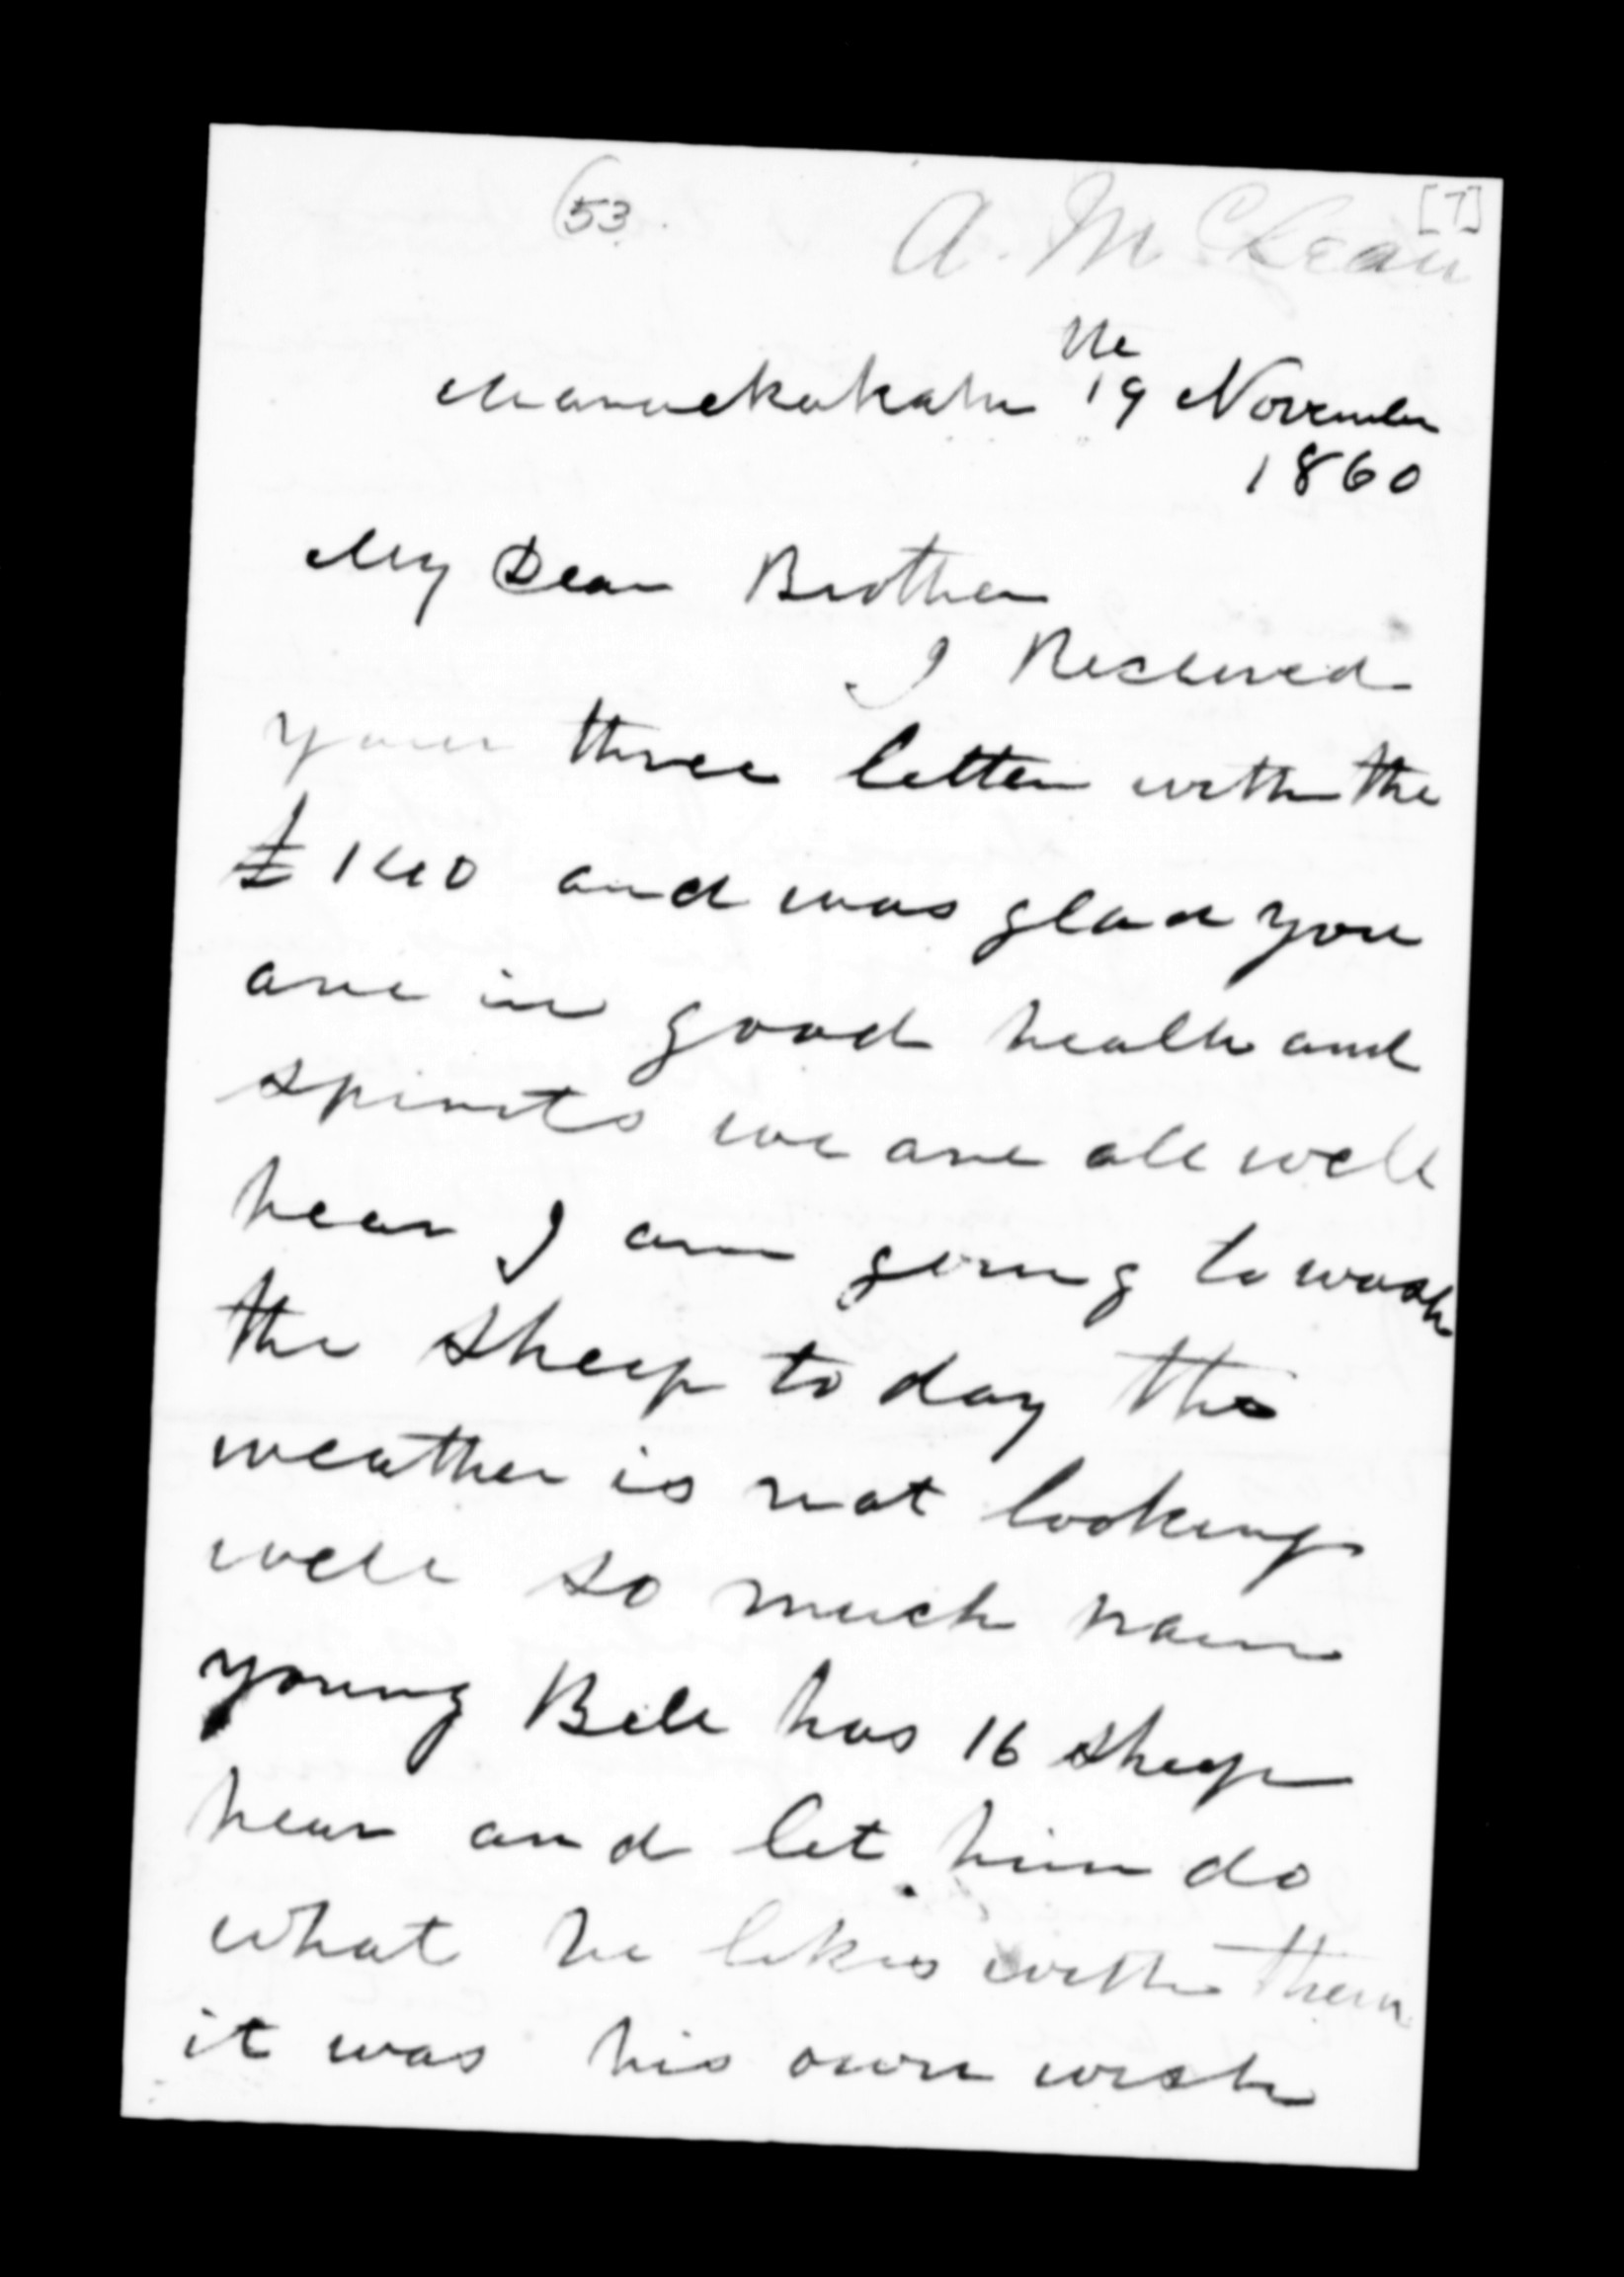 53 A. McLean [7]
the
Maraekakaho 19 November
1860
My Dear Brother
I Received
your three letter with the
£140 and was glad you
are in good health and
spirits we are all well
hear I am going to wash
the sheep to day the
weather is not looking
well so much rain
young Bell has 16 sheep
hear and let him do
what he likes with them
it was his own wish